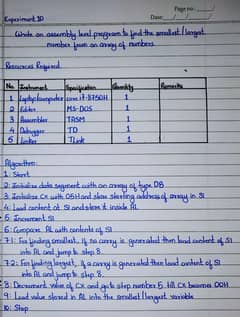 Page no:
Date:
Experiment 10
Write an assembly level program to find the smallest/largest
number from an array of numbers.
Resources Required
No. Instrument Specification Quantity Remarks
1 Laptop/computer core i7-8750H 1
2 Editor MS-DOS 1
3 Assembler TASM 1
4 Debugger TD 1
5 Linker TLink 1
Algorithm:
1: Start
2: Initialize data segment with an array of type DB
3: Initialize CX with 05H and store starting address of array in SI
4: Load content at SI and store it inside AL
5: Increment SI
6: Compare AL with contents of SI
7.1: For finding smallest, if no carry is generated then load content of SI
into AL and jump to step 8.
7.2: For finding largest, if a carry is generated then load content of SI
into AL and jump to step 8.
8: Decrement value of CX and go to step number 5, till CX becomes 00H
9: Load value stored in AL into the smallest/largest variable
10: Stop